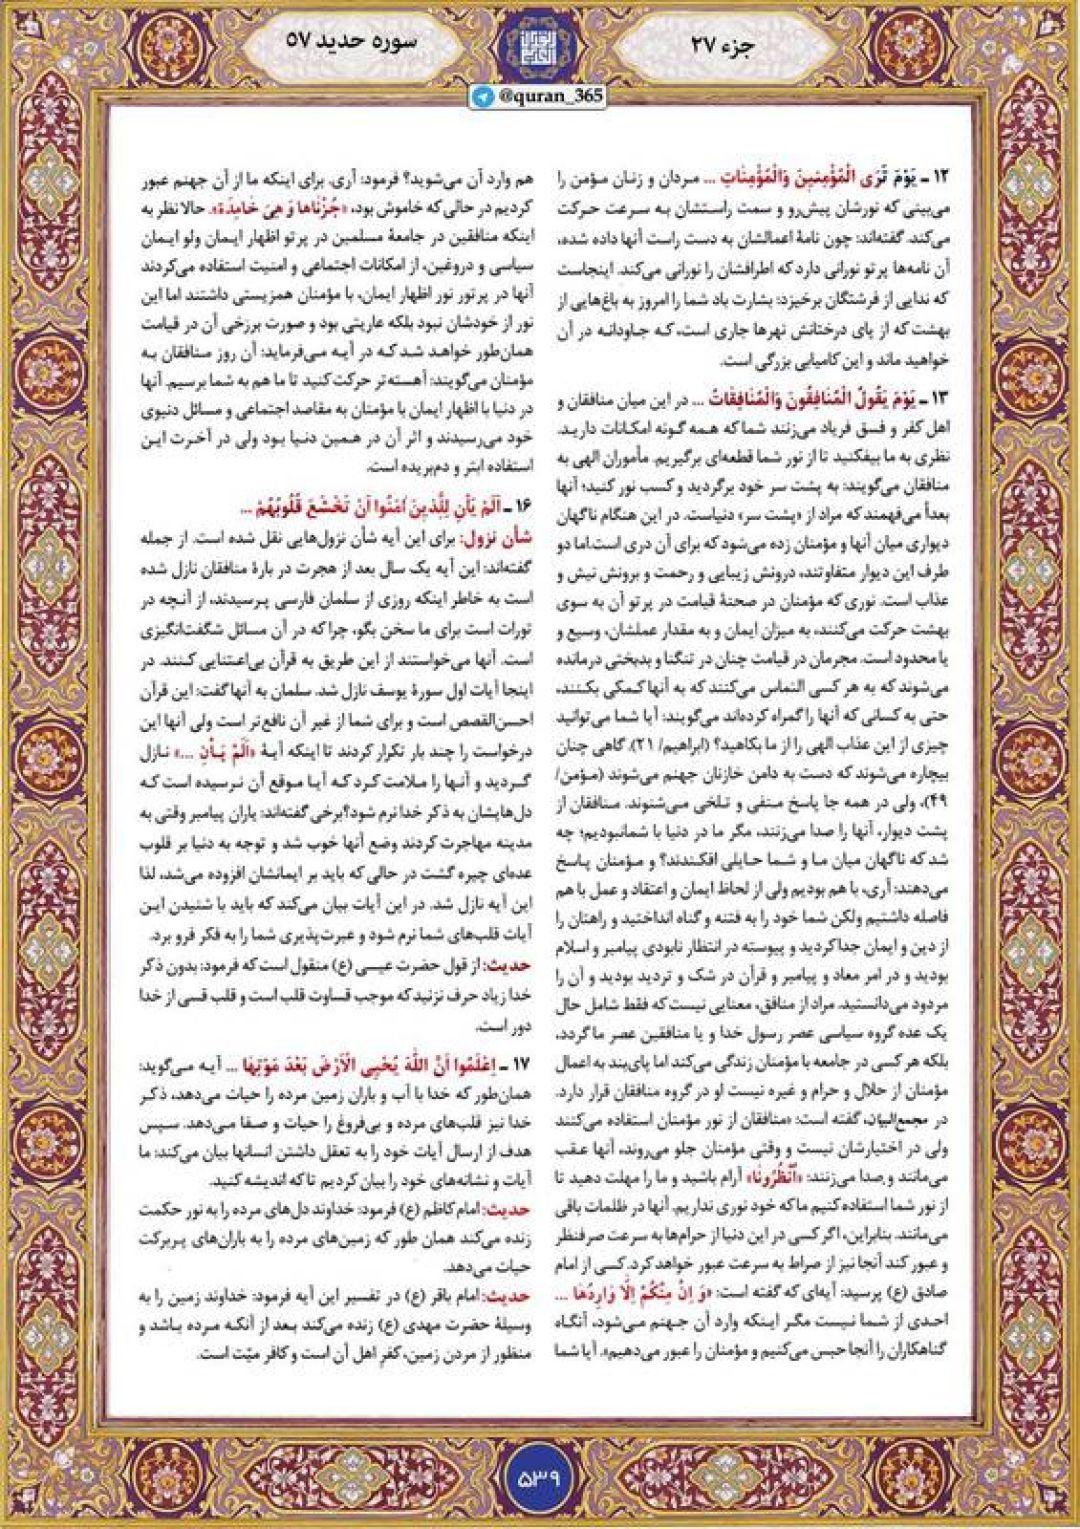 جزء ۲۷
سوره حدید ۵۷
@quran_365
۱۲ ـ یَوْمَ تَرَی الْمُؤْمِنینَ وَالْمُؤْمِناتِ ... مردان و زنان مؤمن را
می‌بینی که نورشان پیش‌رو و سمت راستشان به سرعت حرکت
می‌کند. گفته‌اند: چون نامهٔ اعمالشان به دست راست آنها داده شده،
آن نامه‌ها پرتو نورانی دارد که اطرافشان را نورانی می‌کند. اینجاست
که ندایی از فرشتگان برخیزد: بشارت باد شما را امروز به باغ‌هایی از
بهشت که از پای درختانش نهرها جاری است، که جاودانه در آن
خواهید ماند و این کامیابی بزرگی است.
۱۳ ـ یَوْمَ یَقُولُ الْمُنافِقُونَ وَالْمُنافِقاتُ ... در این میان منافقان و
اهل کفر و فسق فریاد می‌زنند شما که همه گونه امکانات دارید.
نظری به ما بیفکنید تا از نور شما قطعه‌ای برگیریم. مأموران الهی به
منافقان می‌گویند: به پشت سر خود برگردید و کسب نور کنید؛ آنها
بعداً می‌فهمند که مراد از «پشت سر» دنیاست. در این هنگام ناگهان
دیواری میان آنها و مؤمنان زده می‌شود که برای آن دری است.اما دو
طرف این دیوار متفاوتند، درونش زیبایی و رحمت و برونش نیش و
عذاب است. نوری که مؤمنان در صحنهٔ قیامت در پرتو آن به سوی
بهشت حرکت می‌کنند، به میزان ایمان و به مقدار عملشان، وسیع و
یا محدود است. مجرمان در قیامت چنان در تنگنا و بدبختی درمانده
می‌شوند که به هر کسی التماس می‌کنند که به آنها کمکی بکنند،
حتی به کسانی که آنها را گمراه کرده‌اند می‌گویند: آیا شما می‌توانید
چیزی از این عذاب الهی را از ما بکاهید؟ (ابراهیم/ ۲۱). گاهی چنان
بیچاره می‌شوند که دست به دامن خازنان جهنم می‌شوند (مؤمن/
۴۹)، ولی در همه جا پاسخ منفی و تلخی می‌شنوند. منافقان از
پشت دیوار، آنها را صدا می‌زنند، مگر ما در دنیا با شما نبودیم؛ چه
شد که ناگهان میان ما و شما حایلی افکندند؟ و مؤمنان پاسخ
می‌دهند: آری، با هم بودیم ولی از لحاظ ایمان و اعتقاد و عمل با هم
فاصله داشتیم ولکن شما خود را به فتنه و گناه انداختید و راهتان را
از دین و ایمان جدا کردید و پیوسته در انتظار نابودی پیامبر و اسلام
بودید و در امر معاد و پیامبر و قرآن در شک و تردید بودید و آن را
مردود می‌دانستید. مراد از منافق، معنایی نیست که فقط شامل حال
یک عده گروه سیاسی عصر رسول خدا و یا منافقین عصر ما گردد،
بلکه هر کسی در جامعه با مؤمنان زندگی می‌کند اما پای‌بند به اعمال
مؤمنان از حلال و حرام و غیره نیست او در گروه منافقان قرار دارد.
در مجمع‌البیان، گفته است: «منافقان از نور مؤمنان استفاده می‌کنند
ولی در اختیارشان نیست و وقتی مؤمنان جلو می‌روند، آنها عقب
می‌مانند و صدا می‌زنند: «اُنْظُرُونا» آرام باشید و ما را مهلت دهید تا
از نور شما استفاده کنیم ما که خود نوری نداریم. آنها در ظلمات باقی
می‌مانند. بنابراین، اگر کسی در این دنیا از حرام‌ها به سرعت صرفنظر
و عبور کند آنجا نیز از صراط به سرعت عبور خواهد کرد. کسی از امام
صادق (ع) پرسید: آیه‌ای که گفته است: «وَ اِنْ مِنْکُمْ اِلّا وارِدُها ...
احدی از شما نیست مگر اینکه وارد آن جهنم می‌شود، آنگاه
گناهکاران را آنجا حبس می‌کنیم و مؤمنان را عبور می‌دهیم». آیا شما
هم وارد آن می‌شوید؟ فرمود: آری. برای اینکه ما از آن جهنم عبور
کردیم در حالی که خاموش بود، «جُزْناها وَ هِیَ خامِدَة». حالا نظر به
اینکه منافقین در جامعهٔ مسلمین در پرتو اظهار ایمان ولو ایمان
سیاسی و دروغین، از امکانات اجتماعی و امنیت استفاده می‌کردند
آنها در پرتور نور اظهار ایمان، با مؤمنان همزیستی داشتند اما این
نور از خودشان نبود بلکه عاریتی بود و صورت برزخی آن در قیامت
همان‌طور خواهد شد که در آیه می‌فرماید: آن روز منافقان به
مؤمنان می‌گویند: آهسته‌تر حرکت کنید تا ما هم به شما برسیم. آنها
در دنیا با اظهار ایمان با مؤمنان به مقاصد اجتماعی و مسائل دنیوی
خود می‌رسیدند و اثر آن در همین دنیا بود ولی در آخرت این
استفاده ابتر و دم‌بریده است.
۱۶ ـ اَلَمْ یَأْنِ لِلَّذینَ امَنُوا اَنْ تَخْشَعَ قُلُوبُهُمْ ...
شأن نزول: برای این آیه شأن نزول‌هایی نقل شده است. از جمله
گفته‌اند: این آیه یک سال بعد از هجرت در بارهٔ منافقان نازل شده
است به خاطر اینکه روزی از سلمان فارسی پرسیدند، از آنچه در
تورات است برای ما سخن بگو، چرا که در آن مسائل شگفت‌انگیزی
است. آنها می‌خواستند از این طریق به قرآن بی‌اعتنایی کنند. در
اینجا آیات اول سورهٔ یوسف نازل شد. سلمان به آنها گفت: این قرآن
احسن‌القصص است و برای شما از غیر آن نافع‌تر است ولی آنها این
درخواست را چند بار تکرار کردند تا اینکه آیهٔ «اَلَمْ یَأْنِ ...» نازل
گردید و آنها را ملامت کرد که آیا موقع آن نرسیده است که
دل‌هایشان به ذکر خدا نرم شود؟برخی گفته‌اند: یاران پیامبر وقتی به
مدینه مهاجرت کردند وضع آنها خوب شد و توجه به دنیا بر قلوب
عده‌ای چیره گشت در حالی که باید بر ایمانشان افزوده می‌شد، لذا
این آیه نازل شد. در این آیات بیان می‌کند که باید با شنیدن این
آیات قلب‌های شما نرم شود و عبرت‌پذیری شما را به فکر فرو برد.
حدیث: از قول حضرت عیسی (ع) منقول است که فرمود: بدون ذکر
خدا زیاد حرف نزنید که موجب قساوت قلب است و قلب قسی از خدا
دور است.
۱۷ ـ اِعْلَمُوا اَنَّ اللّٰهَ یُحْیِی الْاَرْضَ بَعْدَ مَوْتِها ... آیه می‌گوید:
همان‌طور که خدا با آب و باران زمین مرده را حیات می‌دهد، ذکر
خدا نیز قلب‌های مرده و بی‌فروغ را حیات و صفا می‌دهد. سپس
هدف از ارسال آیات خود را به تعقل داشتن انسانها بیان می‌کند: ما
آیات و نشانه‌های خود را بیان کردیم تا که اندیشه کنید.
حدیث: امام کاظم (ع) فرمود: خداوند دل‌های مرده را به نور حکمت
زنده می‌کند همان طور که زمین‌های مرده را به باران‌های پربرکت
حیات می‌دهد.
حدیث: امام باقر (ع) در تفسیر این آیه فرمود: خداوند زمین را به
وسیلهٔ حضرت مهدی (ع) زنده می‌کند بعد از آنکه مرده باشد و
منظور از مردن زمین، کفرِ اهل آن است و کافر میّت است.
۵۳۹